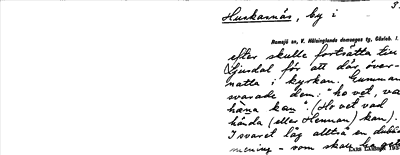 3
Huskasnäs, by i
Ramsjö sn, V. Hälsinglands domsagas tg, Gävleb. l.
efter skulle fortsätta till
Ljusdal för att där över-
natta i kyrkan. Gumman
svarade dem: "ho vet, va
häna kan". (Ho vet vad
hända (eller Hennan) kan).
I svaret låg alltså en dubb
mening - som skall ha